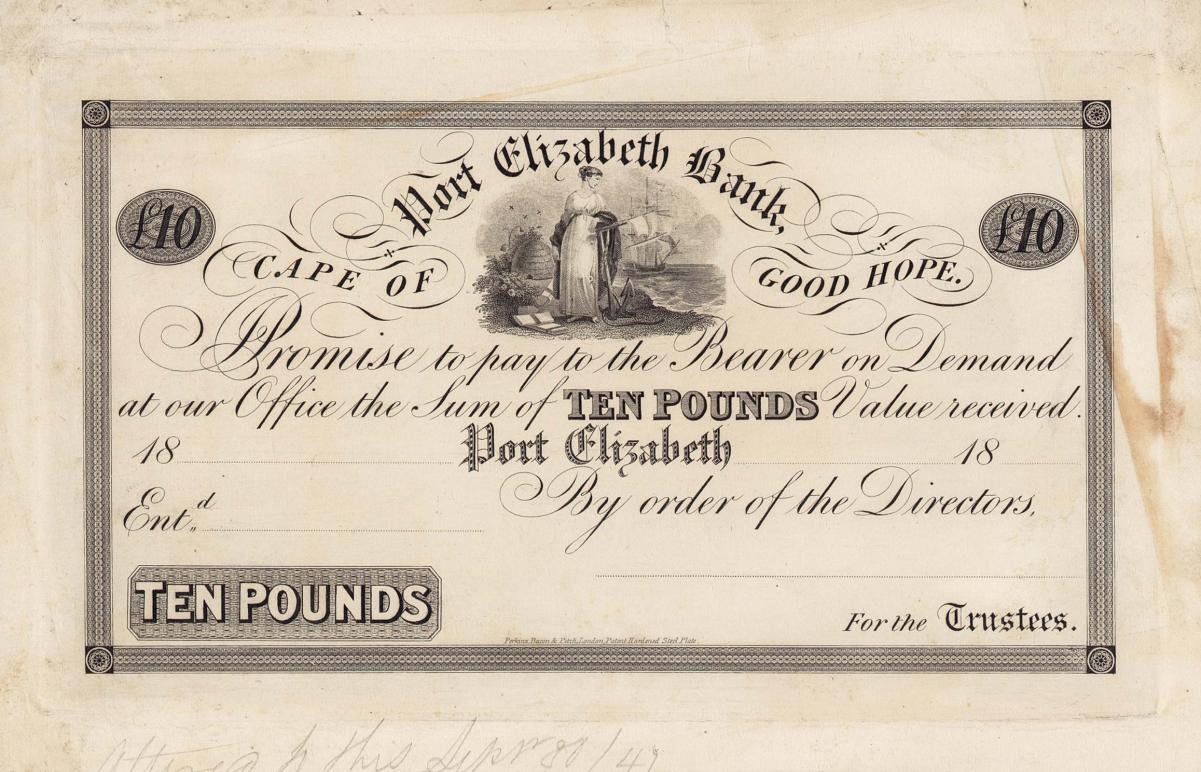 Port Elizabeth Bank,
£10 £10
CAPE OF GOOD HOPE.
Promise to pay to the Bearer on Demand
at our Office the Sum of TEN POUNDS Value received.
18 Port Elizabeth 18
Ent.d By order of the Directors,
TEN POUNDS
For the Trustees.
Perkins, Bacon & Petch, London, Patent Hardened Steel Plate.
this Sepr